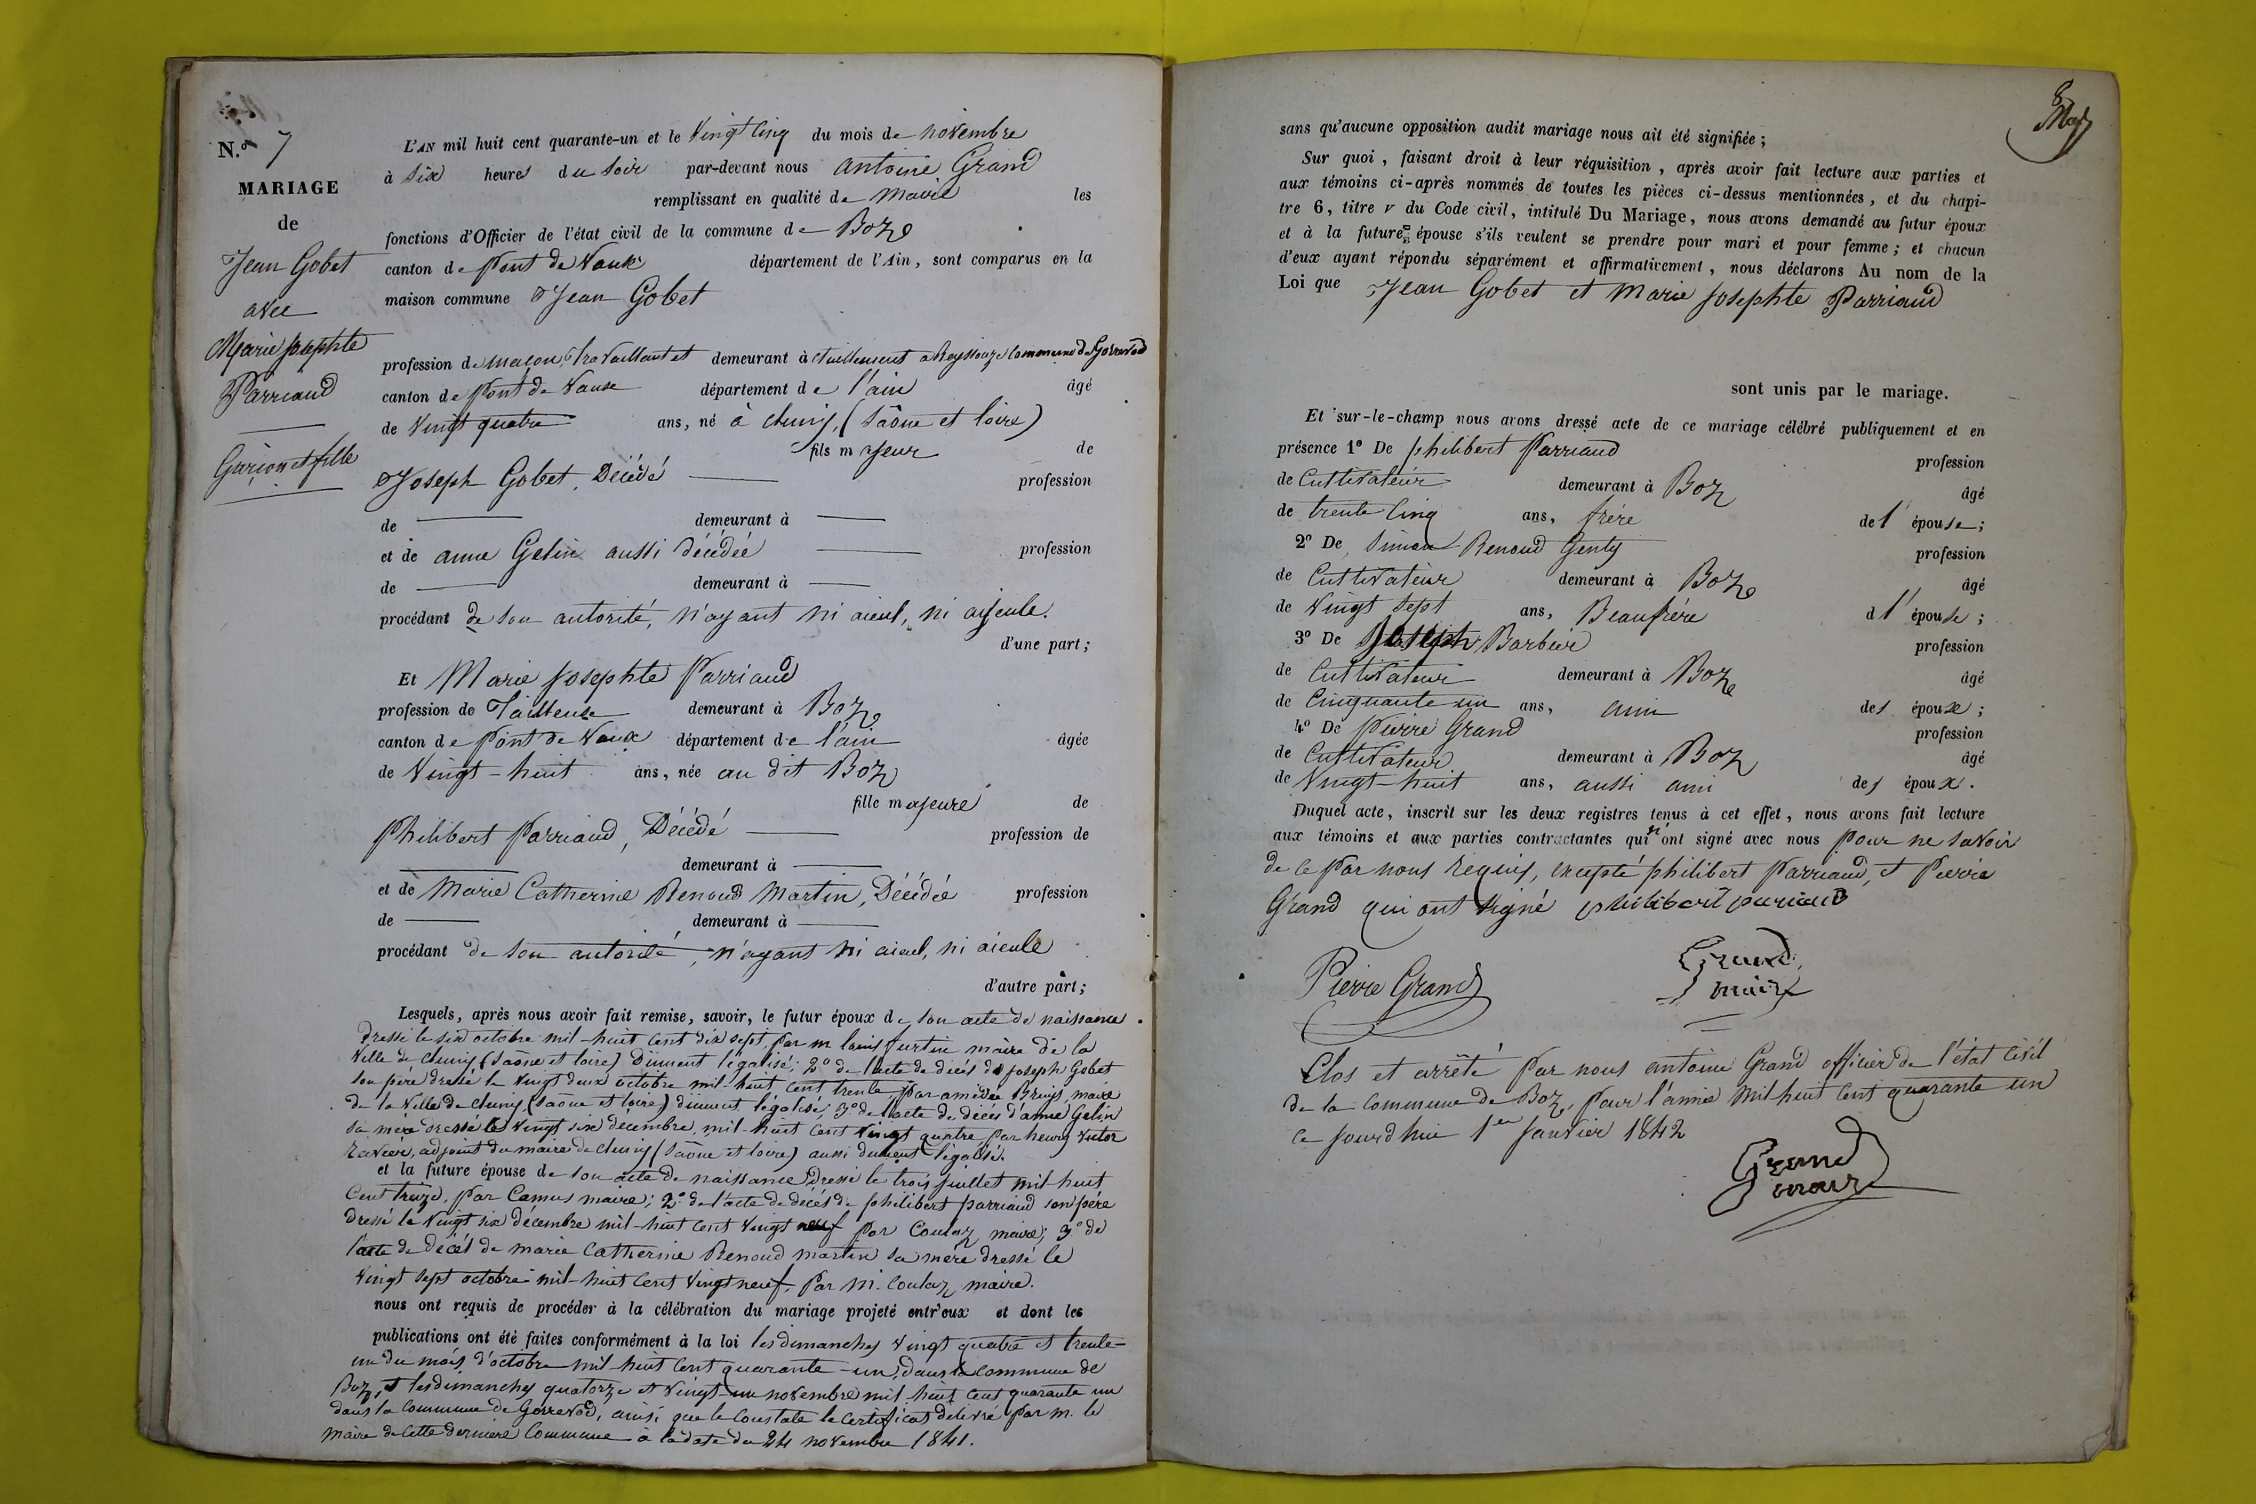 N.o 7
MARIAGE
de
Jean Gobet
avec
Marie josephte
Parriaud
Garçon et fille
L'AN mil huit cent quarante-un et le vingt cinq du mois de novembre
à six heures du soir par-devant nous antoine Grand
remplissant en qualité de maire les
fonctions d'Officier de l'état civil de la commune de Boz
canton de Pont de Vaux département de l'Ain, sont comparus en la
maison commune Jean Gobet
profession de maçon, travaillant et demeurant actuellement a Reyssouze commune de Gorrevod
canton de Pont de Vaux département de l'ain âgé
de vingt quatre ans, né à Cluny, (Saône et loire)
fils majeur de
Joseph Gobet, Décédé profession
de demeurant à
et de anne Gelin aussi décédée profession
de demeurant à
procédant de son autorité, n'ayant ni aieul, ni ayeule.
d'une part;
Et Marie josephte Parriaud
profession de Tailleuse demeurant à Boz
canton de Pont de Vaux département de l'ain âgée
de Vingt-huit ans, née au dit Boz
fille majeure de
Philibert Parriaud, Décédé profession de
demeurant à
et de Marie Catherine Renoud Martin, Décédée profession
de demeurant à
procédant de son autorité, n'ayant ni aieul, ni aieule
d'autre part;
Lesquels, après nous avoir fait remise, savoir, le futur époux de son acte de naissance
dressé le six octobre mil-huit cent dix sept, par m louis furtin maire de la
Ville de Cluny (Saône et loire) Dûment légalisé; 2o de l'acte de décès de joseph Gobet
son père dressé le vingt deux octobre mil-huit cent trente, par amédée Bruys, maire
de la Ville de Cluny (Saône et loire) dûment légalisé; 3o de l'acte de décès d'anne Gelin
sa mère dressé le vingt six décembre, mil-huit cent vingt quatre par henry victor
adjoint du maire de Cluny (Saône et loire) aussi dûment légalisé.
et la future épouse de son acte de naissance dressé le trois juillet mil huit
cent treize, par Camus maire; 2o de l'acte de décès de philibert parriaud son père
dressé le vingt six décembre mil-huit cent vingt neuf par Coulaz, maire; 3o de
l'acte de décès de marie Catherine Renoud martin sa mère dressé le
vingt sept octobre mil-huit cent vingt neuf, par M. Coulaz, maire.
nous ont requis de procéder à la célébration du mariage projeté entr'eux et dont les
publications ont été faites conformément à la loi les dimanches vingt quatre et trente-
un du mois d'octobre mil-huit cent quarante-un, dans la commune de
Boz, et les dimanches quatorze et vingt-un novembre mil-huit cent quarante un
dans la commune de Gorrevod, ainsi que le constate le certificat délivré par m. le
maire de cette dernière commune à la date du 24 novembre 1841.
sans qu'aucune opposition audit mariage nous ait été signifiée;
Sur quoi, faisant droit à leur réquisition, après avoir fait lecture aux parties et
aux témoins ci-après nommés de toutes les pièces ci-dessus mentionnées, et du chapi-
tre 6, titre v du Code civil, intitulé Du Mariage, nous avons demandé au futur époux
et à la future épouse s'ils veulent se prendre pour mari et pour femme; et chacun
d'eux ayant répondu séparément et affirmativement, nous déclarons Au nom de la
Loi que Jean Gobet et Marie josephte Parriaud
sont unis par le mariage.
Et sur-le-champ nous avons dressé acte de ce mariage célébré publiquement et en
présence 1o De philibert Parriaud profession
de Cultivateur demeurant à Boz âgé
de trente cinq ans, frère de l'épouse;
2o De Simon Renoud Genty profession
de Cultivateur demeurant à Boz âgé
de vingt sept ans, Beaufrère d l'épouse;
3o De joseph Barbier profession
de Cultivateur demeurant à Boz âgé
de Cinquante un ans, ami des époux;
4o De Pierre Grand profession
de Cultivateur demeurant à Boz âgé
de Vingt-huit ans, aussi ami des époux.
Duquel acte, inscrit sur les deux registres tenus à cet effet, nous avons fait lecture
aux témoins et aux parties contractantes qui n'ont signé avec nous pour ne savoir
de ce par nous requis, excepté philibert Parriaud, et Pierre
Grand qui ont signé philibert pariaud
Pierre Grand
Grand
maire
Clos et arrêté par nous antoine Grand officier de l'état civil
de la commune de Boz, pour l'année mil huit cent quarante un
ce jourd'hui 1er janvier 1842
Grand
maire